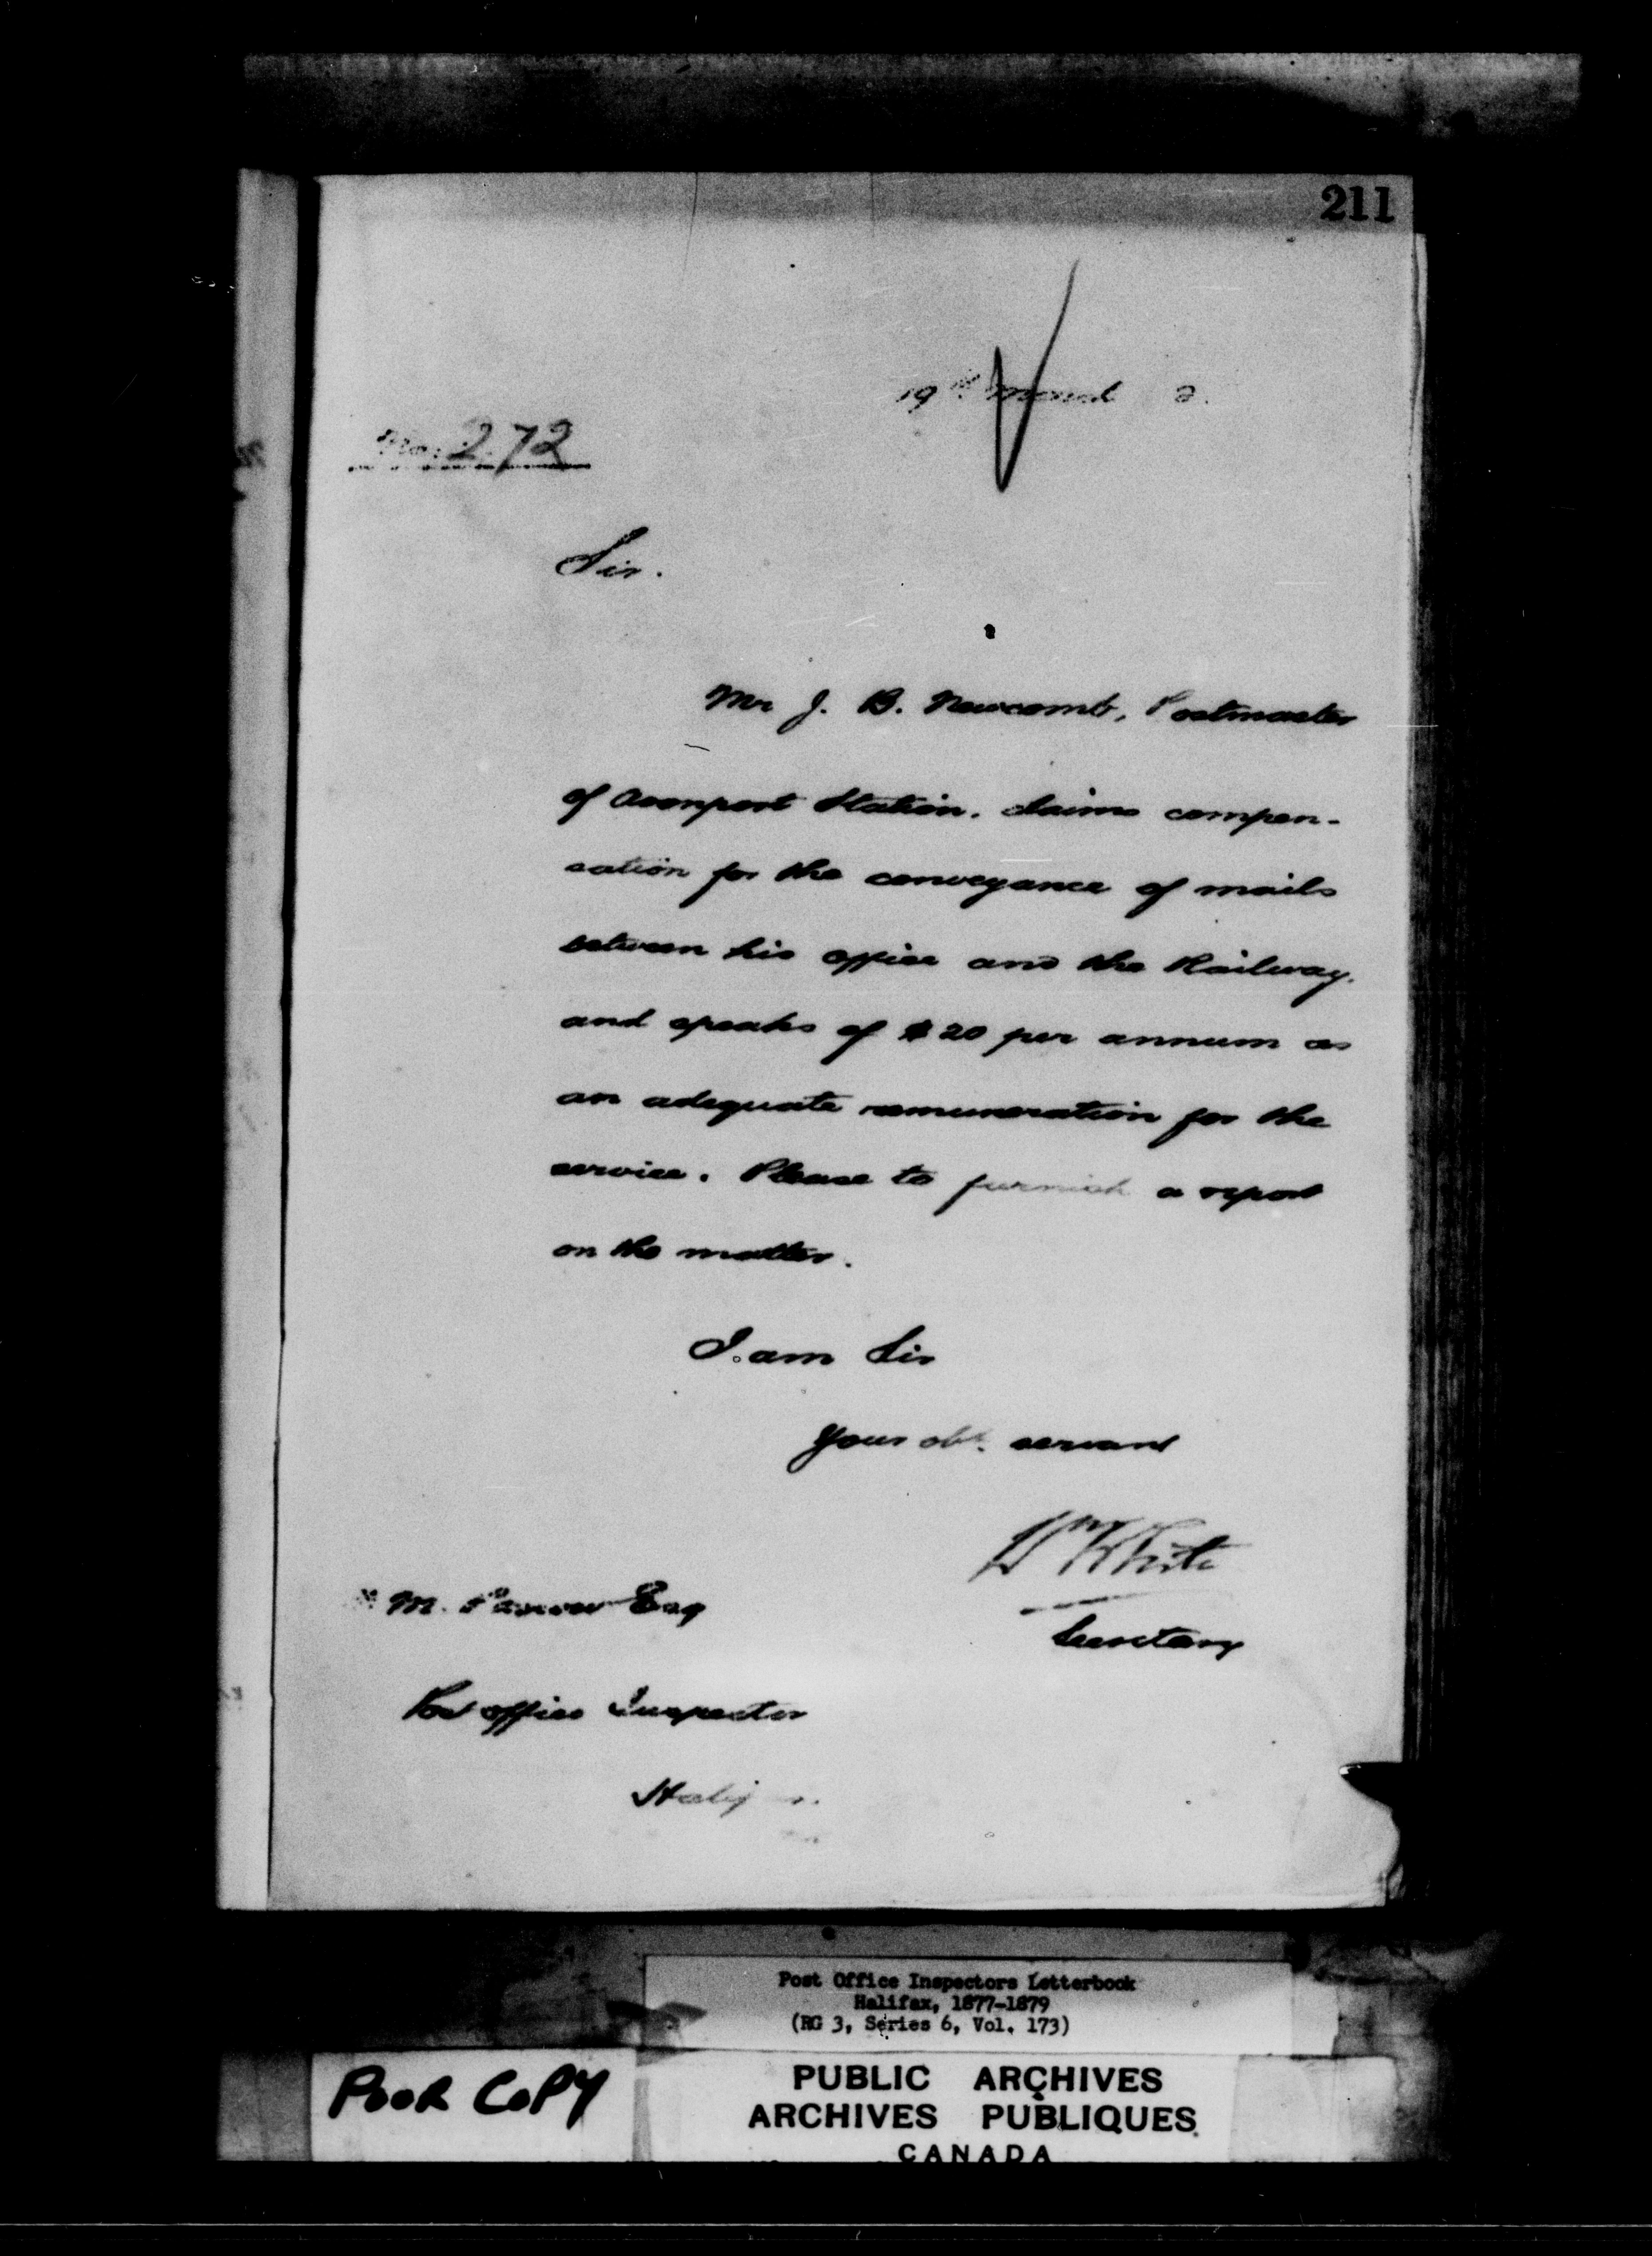 211
19th March 8.
No. 272
Sir.
Mr J. B. Newcomb, Postmaster
of Avonport Station, claims compen-
sation for the conveyance of mails
between his office and the Railway.
and speaks of $20 per annum as
an adequate remuneration for the
service. Please to furnish a report
on the matter.
I am Sir
Your obt. servant
Wm White
Secretary
M. Esq
Post office Inspector
Halifax
Post Office Inspectors Letterbook
Halifax, 1877-1879
(RG 3, Series 6, Vol. 173)
POOR COPY
PUBLIC ARCHIVES
ARCHIVES PUBLIQUES
CANADA